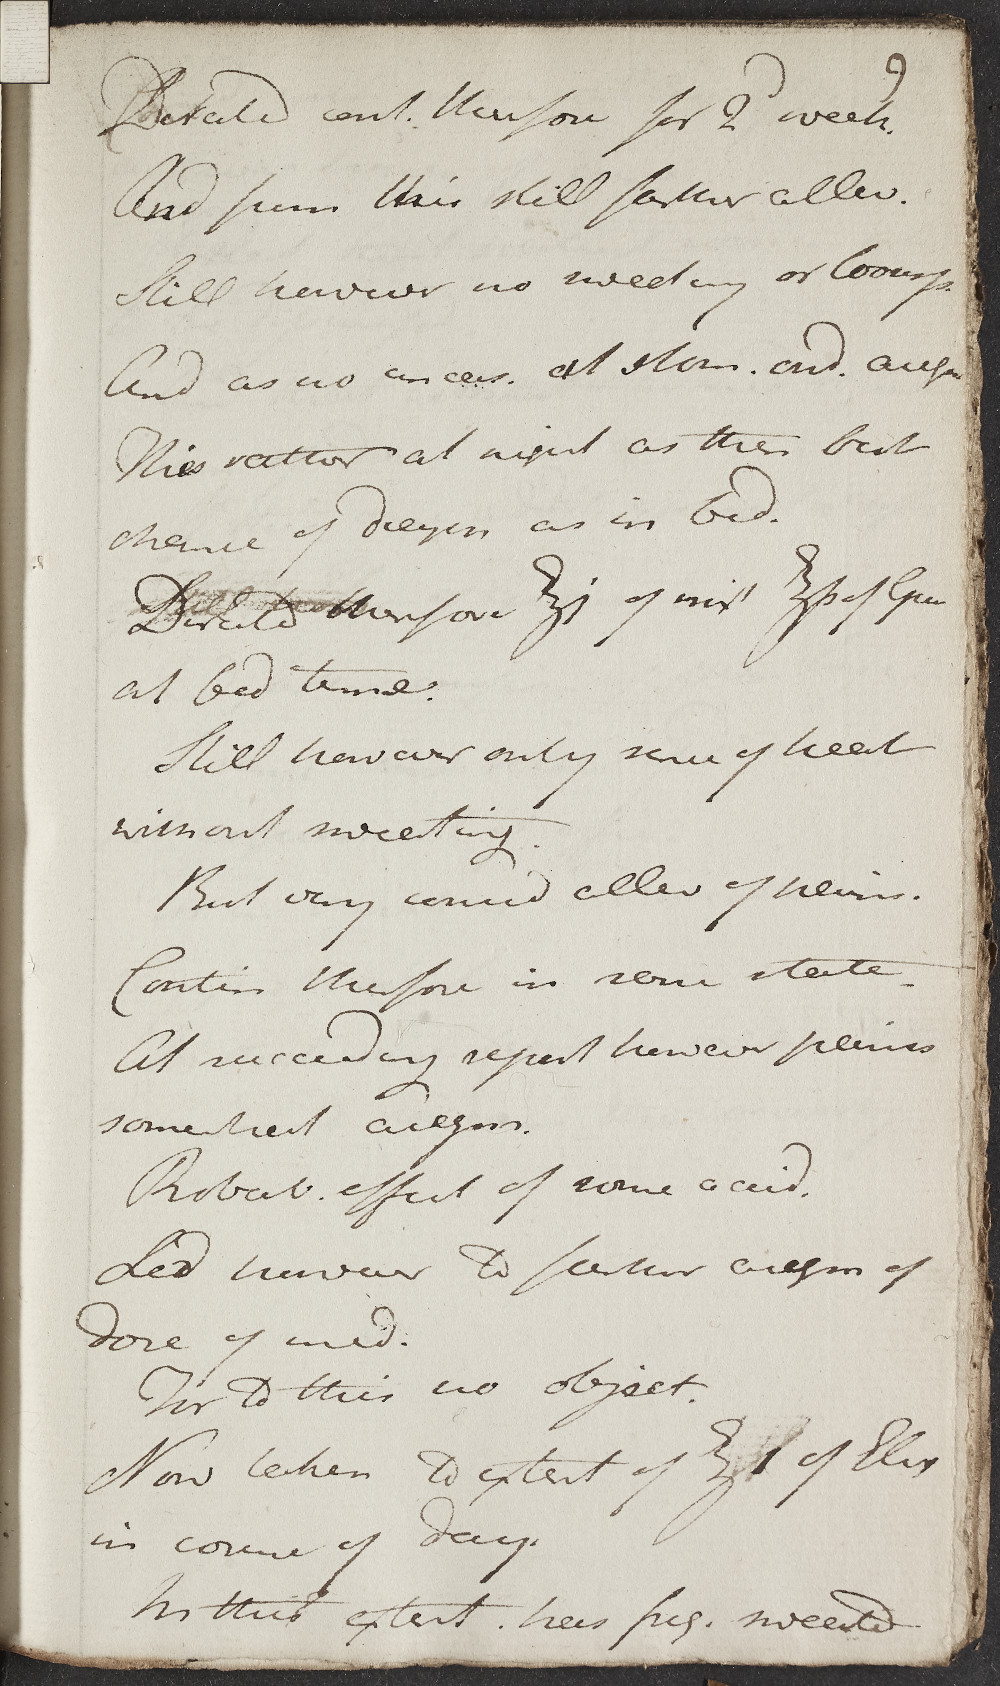 9
Directed cont. therefore for 2d week.
And from this still farther allev.
Still however no sweating or loosness.
And as no uneas. at stom. ord. augm
This rather at night as then best
chance of diegm as in bed.
Directed therefore ʒj of mixt ʒß of Gua
at bed time.
Still however only sense of heat
without sweating.
But very consid allev of pains.
Contin therefore in same state
At succeeding report however pains
somewhat augm.
Probab. effect of some accid.
Led however to farther augm of
dose of med.
For to this no object.
Now taken to extent of ʒ1 of Elix
in course of day.
In this extent has freq. sweated